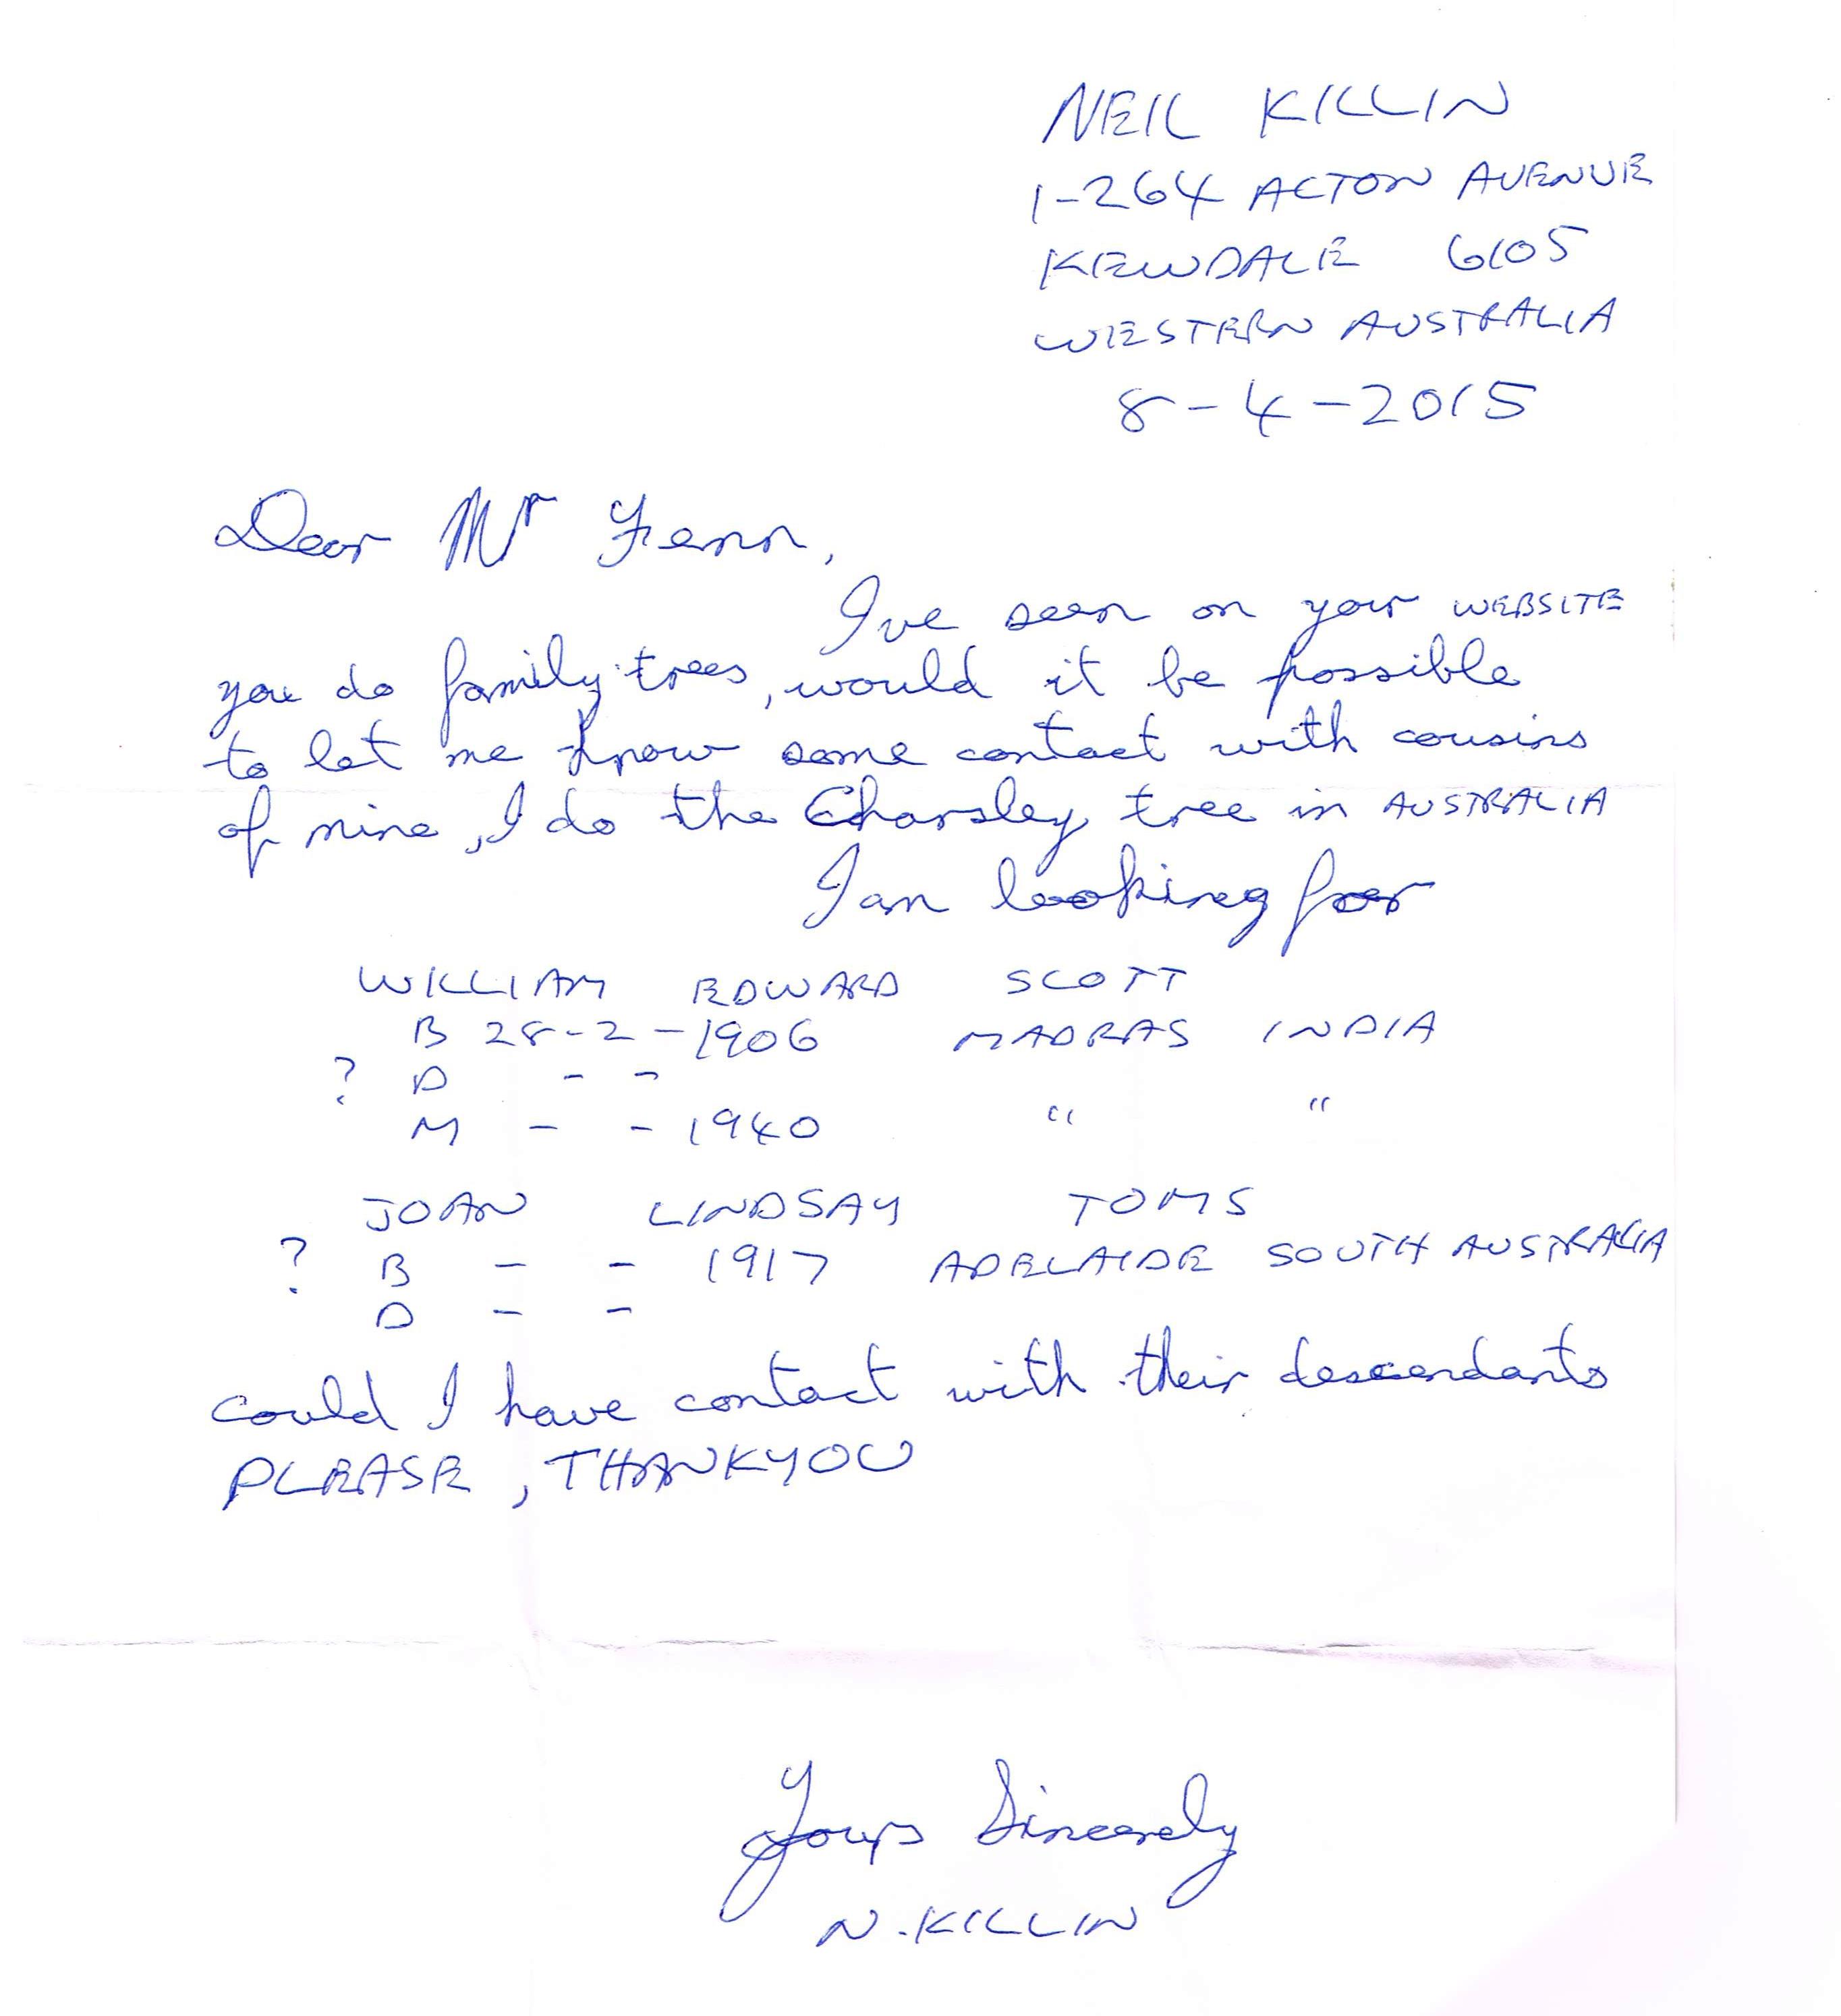 NEIL KILLIN
1-264 ACTON AVENUE
KEWDALE 6105
WESTERN AUSTRALIA
8-4-2015
Dear Mr Fenn,
Ive seen on your WEBSITE
you do family trees, would it be possible
to let me know some contact with cousins
of mine, I do the Charsley tree in AUSTRALIA
I am looking for
WILLIAM EDWARD SCOTT
B 28-2-1906 MADRAS INDIA
? D - -
M - - 1940 " "
JOAN LINDSAY TOMS
? B - - 1917 ADELAIDE SOUTH AUSTRALIA
D - -
could I have contact with their descendants
PLEASE, THANKYOU
Yours Sincerely
N. KILLIN